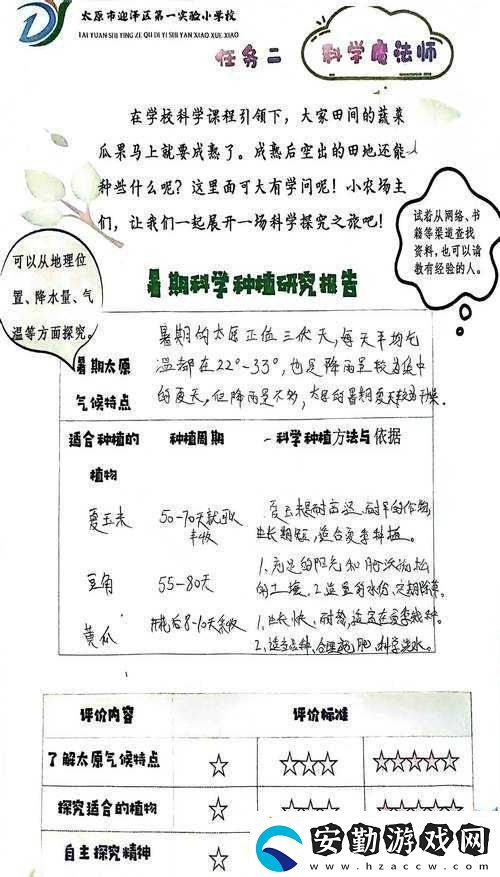 太原市迎泽区第一实验小学校
TAI YUAN SHI YING ZE QU DI YI SHI YAN XIAO XUE XIAO
任务二
科学魔法师
在学校科学课程引领下，大家田间的蔬菜
瓜果马上就要成熟了。成熟后空出的田地还能
种些什么呢？这里面可大有学问呢！小农场主
们，让我们一起展开一场科学探究之旅吧！
试着从网络、书
籍等渠道查找
资料，也可以请
教有经验的人。
可以从地理位
置、降水量、气
温等方面探究。
暑期科学种植研究报告
暑期太原
气候特点
暑期的太原正值三伏天，每天平均气
温都在22°-33°，也是降雨量较为集中
的夏天，但降雨量不多，太原的暑期夏天较为干燥。
适合种植的
植物
种植周期
科学种植方法与依据
夏玉米
50-70天就可以
丰收
夏玉米是耐高温、耐旱的作物，
生长期短，适合夏季种植。
豆角
55-80天
1、充足的阳光和肥沃疏松
的土壤。2、适量的水份，定期除草。
黄瓜
开花后8-10天采收
1、生长快、耐热，适宜在夏季栽种。
2、适当品种、合理施肥、科学浇水。
评价内容
评价标准
了解太原气候特点
☆
☆☆☆
☆☆☆☆☆
探究适合的植物
☆
☆☆☆
☆☆☆☆☆
自主探究精神
☆
安勤游戏网
WWW.HZACCW.COM